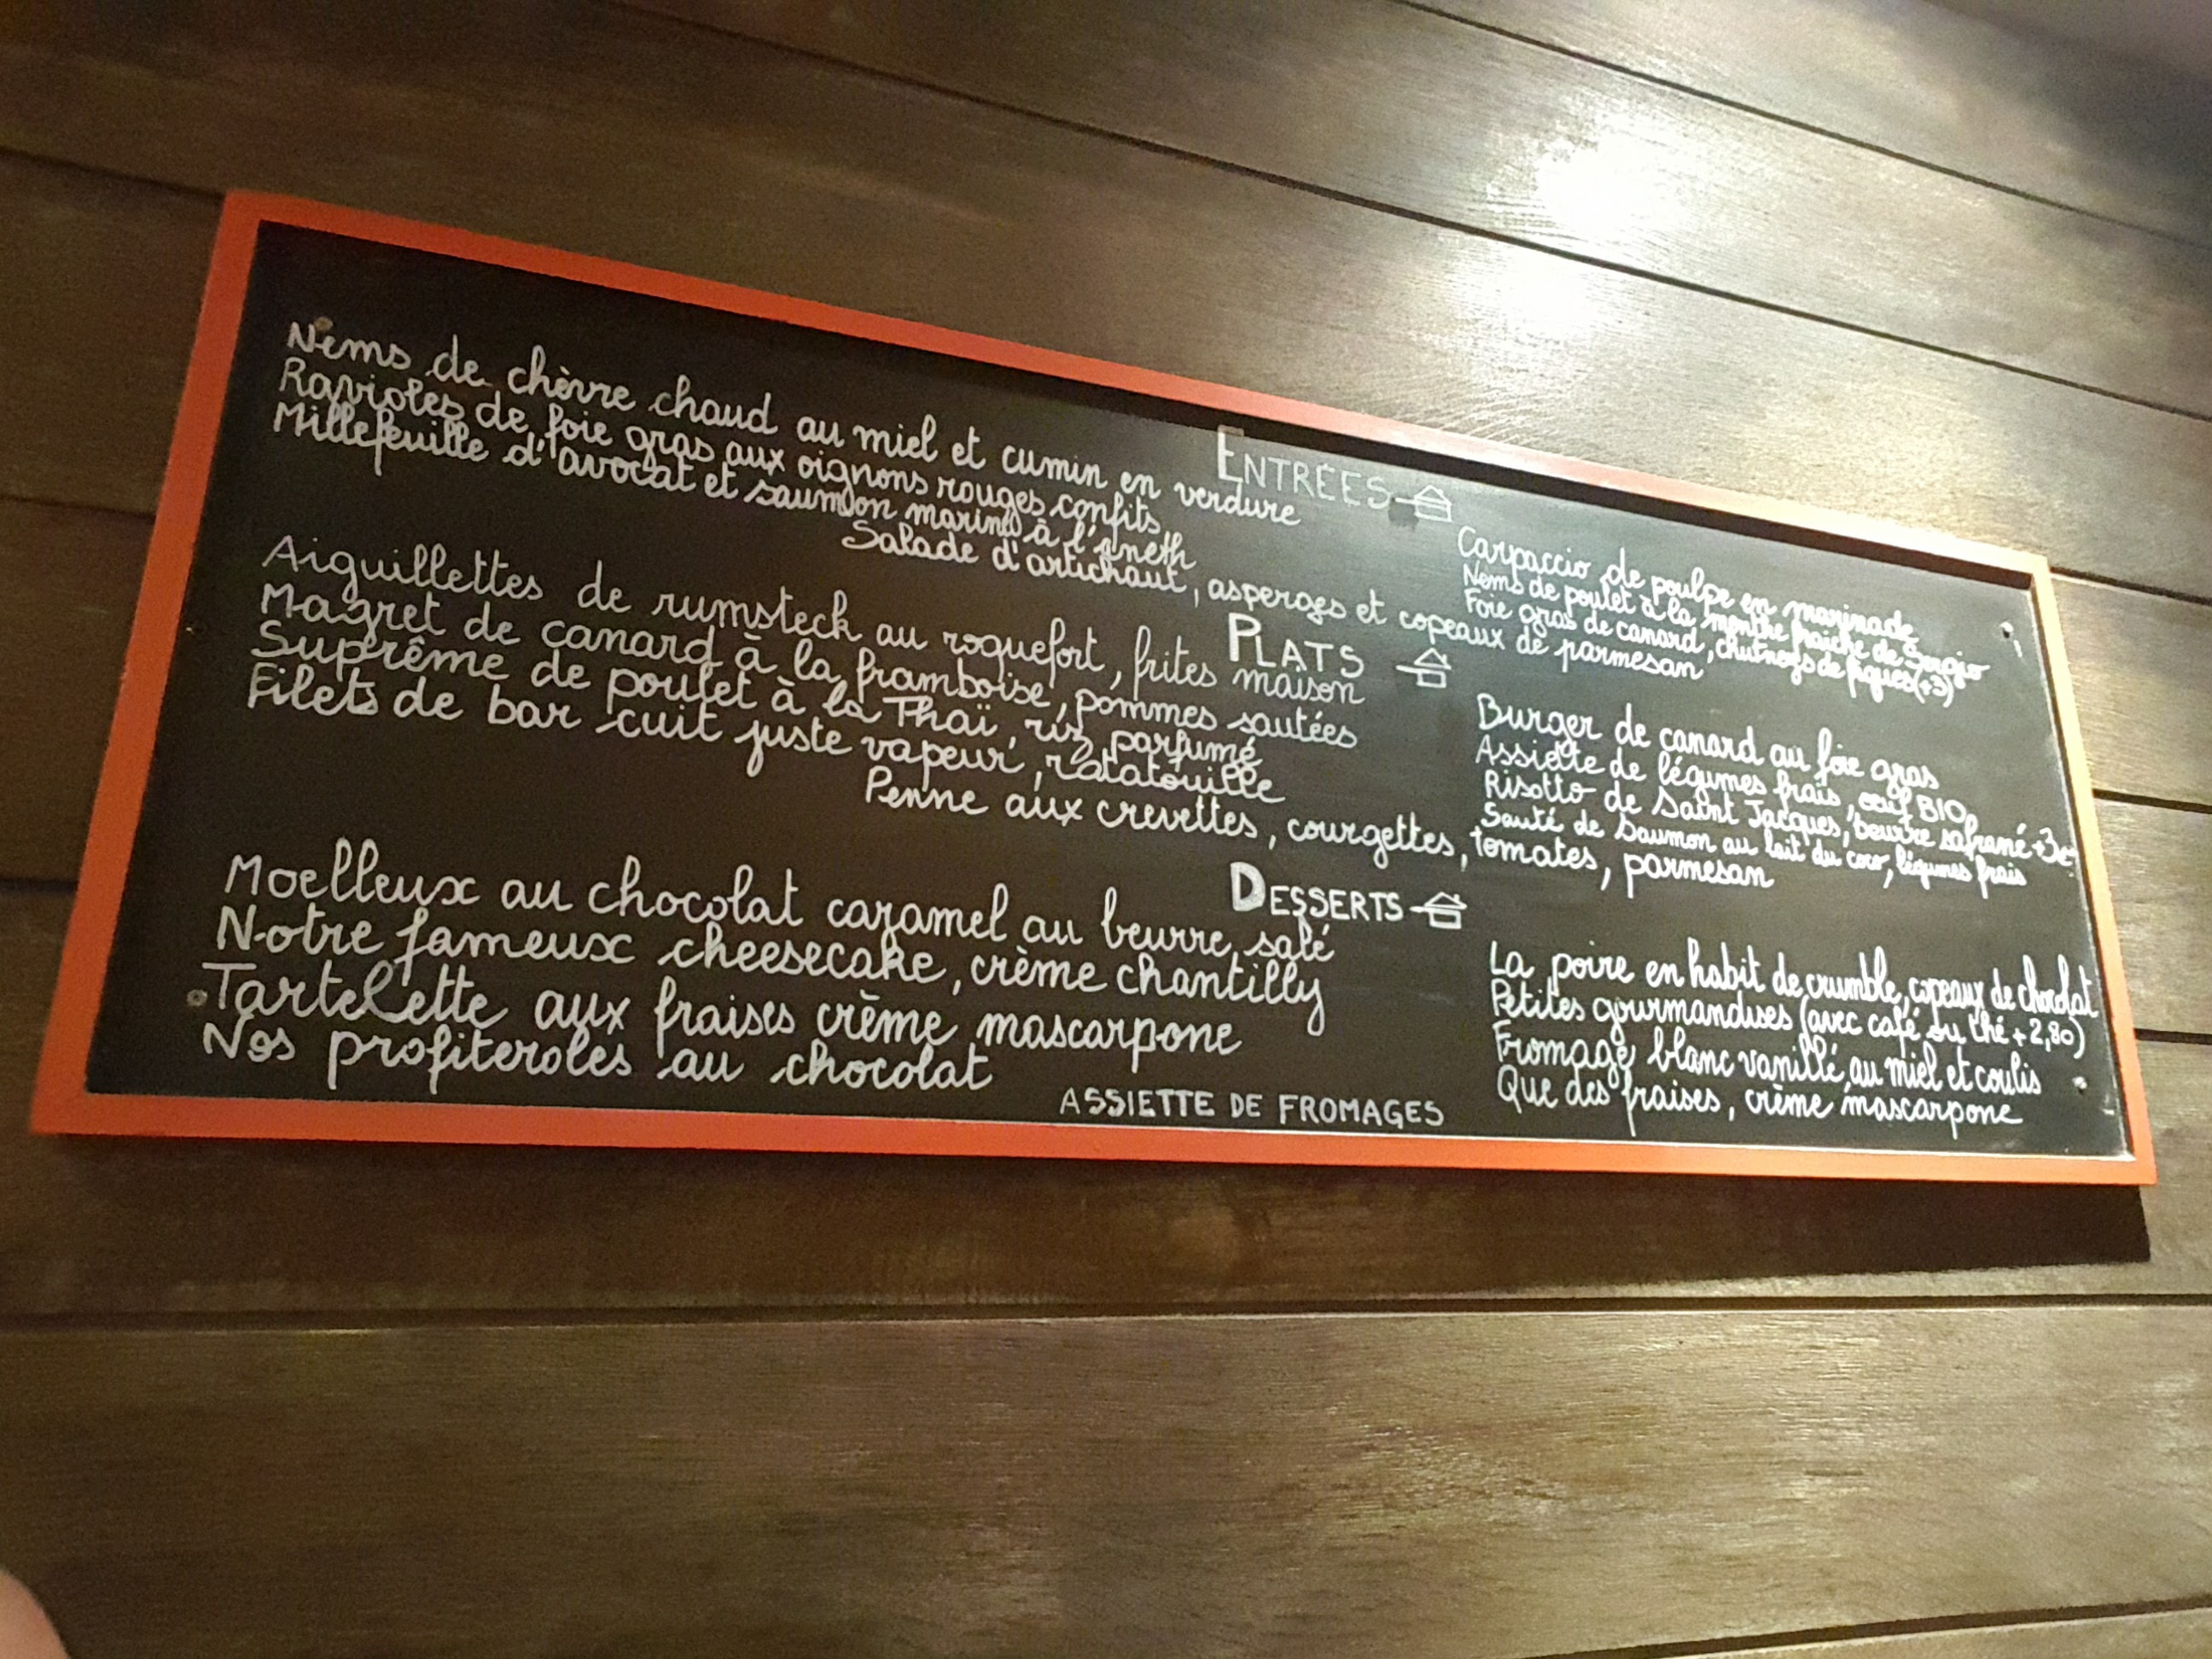 ENTRÉES
Nems de chèvre chaud au miel et cumin en verdure
Ravioles de foie gras aux oignons rouges confits
Millefeuille d'avocat et saumon mariné à l'aneth
Carpaccio de poulpe en marinade
Nems de poulet à la menthe fraîche de Sergio
Foie gras de canard, chutneys de figues (+3)
Salade d'artichaut, asperges et copeaux de parmesan
PLATS
Aiguillettes de rumsteck au roquefort, frites maison
Magret de canard à la framboise, pommes sautées
Suprême de poulet à la Thaï, riz parfumé
Filets de bar cuit juste vapeur, ratatouille
Burger de canard au foie gras
Assiette de légumes frais, œuf BIO
Risotto de Saint Jacques, beurre safrané +3€
Sauté de Saumon au lait du coco, légumes frais
Penne aux crevettes, courgettes, tomates, parmesan
DESSERTS
Moelleux au chocolat caramel au beurre salé
Notre fameux cheesecake, crème chantilly
Tartelette aux fraises crème mascarpone
Nos profiteroles au chocolat
La poire en habit de crumble, copeaux de chocolat
Petites gourmandises (avec café ou thé +2,80)
Fromage blanc vanillé, au miel et coulis
Que des fraises, crème mascarpone
ASSIETTE DE FROMAGES